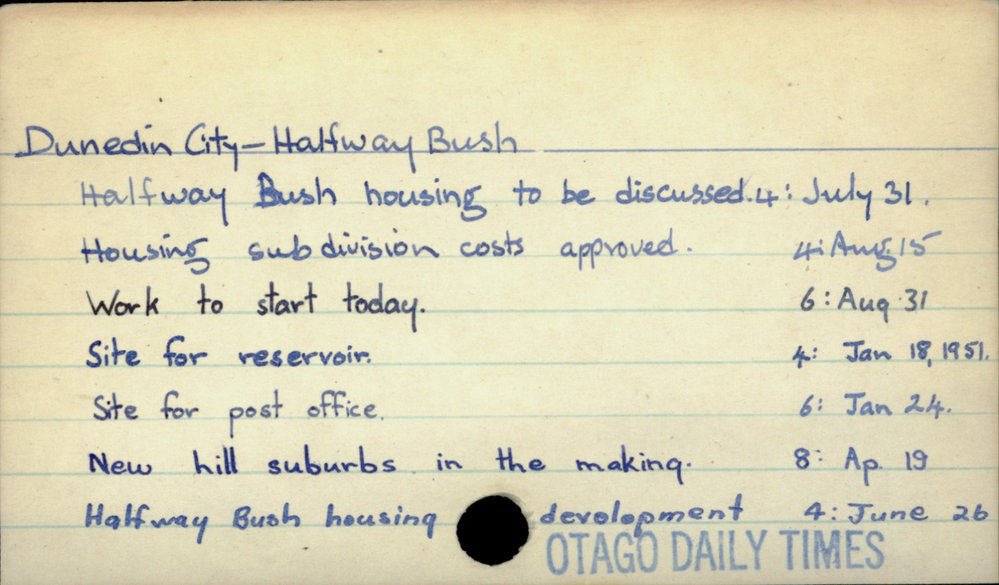 Dunedin City – Halfway Bush
Halfway Bush housing to be discussed. 4: July 31.
Housing subdivision costs approved. 4: Aug. 15
Work to start today. 6: Aug 31
Site for reservoir. 4: Jan 18, 1951.
Site for post office. 6: Jan 24.
New hill suburbs in the making. 8: Ap. 19
Halfway Bush housing development 4: June 26
OTAGO DAILY TIMES